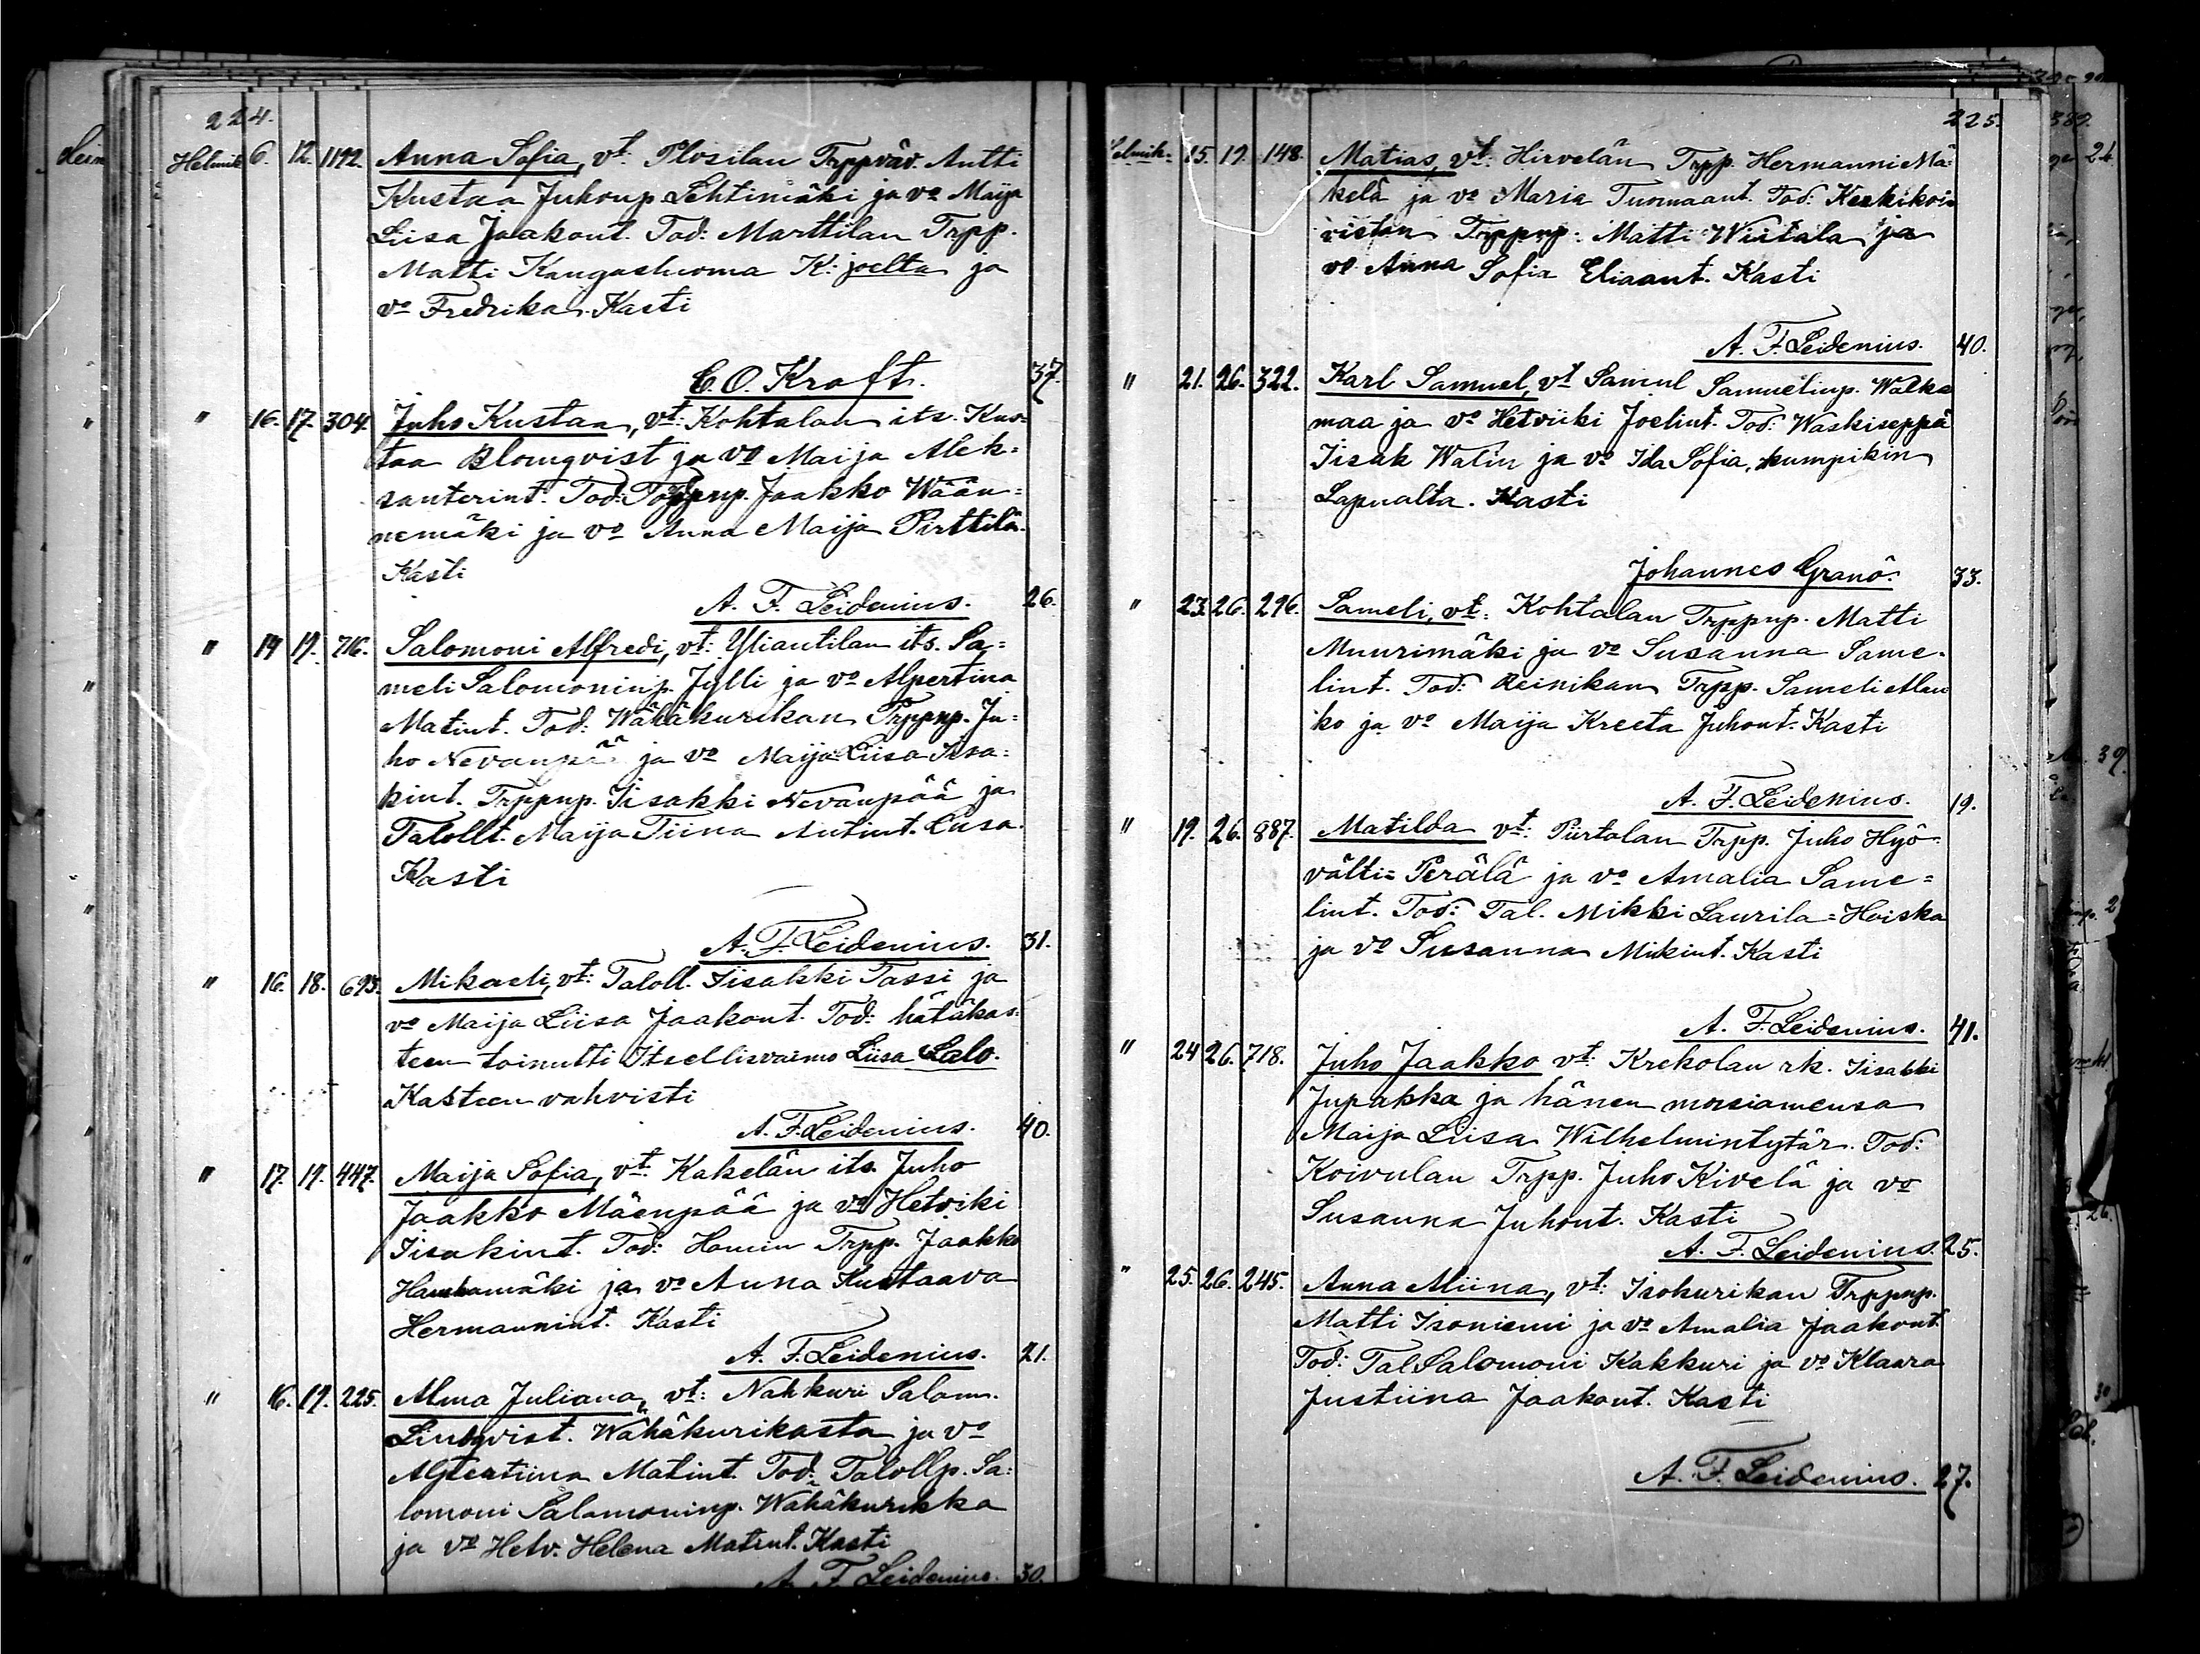 224.
Helmik 6. 12. 1192. Anna Sofia, vt. Plosilan Trppväv. Antti
Kustaa Juhonp. Lehtimäki ja vo Maija
Liisa Jaakont. Tod: Marttilan Trpp.
Matti Kangasluoma K: joelta ja
vo Fredrika. Kasti
C. O. Kraft. 37.
" 16. 17. 304. Juho Kustaa, vt: Kohtalan its. Kus=
taa Blomqvist ja vo Maija Alek=
santerint. Tod: Jaakko Wään=
nemäki ja vo Anna Maija Pirttilä.
Kasti
A. F. Leidenius. 26.
" 19 19. 716. Salomoni Alfredi, vt: Yliantilan its. Sa=
meli Salomoninp. Jylli ja vo Alpertina
Matint. Tod: Wähäkurikan Trppnp. Ju=
ho Nevanpää ja vo Maija Liisa Iisa=
kint. Trppnp. Iisakki Nevanpää ja
Talollt. Maija Tiina Antint. Lusa.
Kasti
A. F. Leidenius. 31.
" 16. 18. 693. Mikaeli, vt: Taloll. Iisakki Tassi ja
vo Maija Liisa Jaakont. Tod: hätäkas=
teen toimitti Itsellisvaimo Liisa Salo.
Kasteen vahvisti
A. F. Leidenius. 40.
" 17. 19. 447. Maija Sofia, vt. Kakelän its. Juho
Jaakko Mäenpää ja vo Hetviki
Iisakint. Tod: Homin Trpp. Jaakko
Hauhamäki ja vo Anna Kustaava
Hermannint. Kasti
A. F. Leidenius. 21.
" 16. 19. 225. Alma Juliana, vt: Nahkuri Salom.
Lindqvist. Wähäkurikasta ja vo
Alpertiina Matint. Tod: Talollp. Sa=
lomoni Salamoninp. Wähäkurikka
ja vo Hetv. Helena Matint. Kasti
A. F. Leidenius. 30.
225.
Helmik. 15. 19. 148. Matias, vt: Hirvelän Trpp. Hermanni Mä=
kelä ja vo Maria Tuomaant. Tod: Keskikoi=
viston Trppnp. Matti Wiitala ja
vo Anna Sofia Eliaant. Kasti
A. F. Leidenius. 40.
" 21. 26. 322. Karl Samuel, vt Samul Samuelinp. Walka
maa ja vo Hetviiki Joelint. Tod: Waskiseppä
Iisak Walin ja vo Ida Sofia, kumpikin
Lapualta. Kasti
Johannes Granö. 33.
" 23. 26. 296. Sameli, vt: Kohtalan Trppnp. Matti
Muurimäki ja vo Susanna Same=
lint. Tod: Reinikan Trpp. Sameli Alan
ko ja vo Maija Kreeta Juhont. Kasti
A. F. Leidenius. 19.
" 19. 26. 887. Matilda vt: Piirtolan Trpp. Juho Hyö=
välti= Perälä ja vo Amalia Same=
lint. Tod: Tal. Mikki Laurila=Hoiska
ja vo Susanna Mikint. Kasti
A. F. Leidenius. 41.
" 24 26. 718. Juho Jaakko vt: Krekolan rk. Iisakki
Jupakka ja hänen morsiamensa
Maija Liisa Wilhelmintytär. Tod:
Koivulan Trpp. Juho Kivelä ja vo
Susanna Juhont. Kasti
A. F. Leidenius. 25.
" 25. 26. 245. Anna Miina, vt: Isokurikan Trppnp.
Matti Isoniemi ja vo Amalia Jaakont.
Tod: Tal Salomoni Kakkuri ja vo Klaara
Justiina Jaakont. Kasti
A. F. Leidenius. 27.